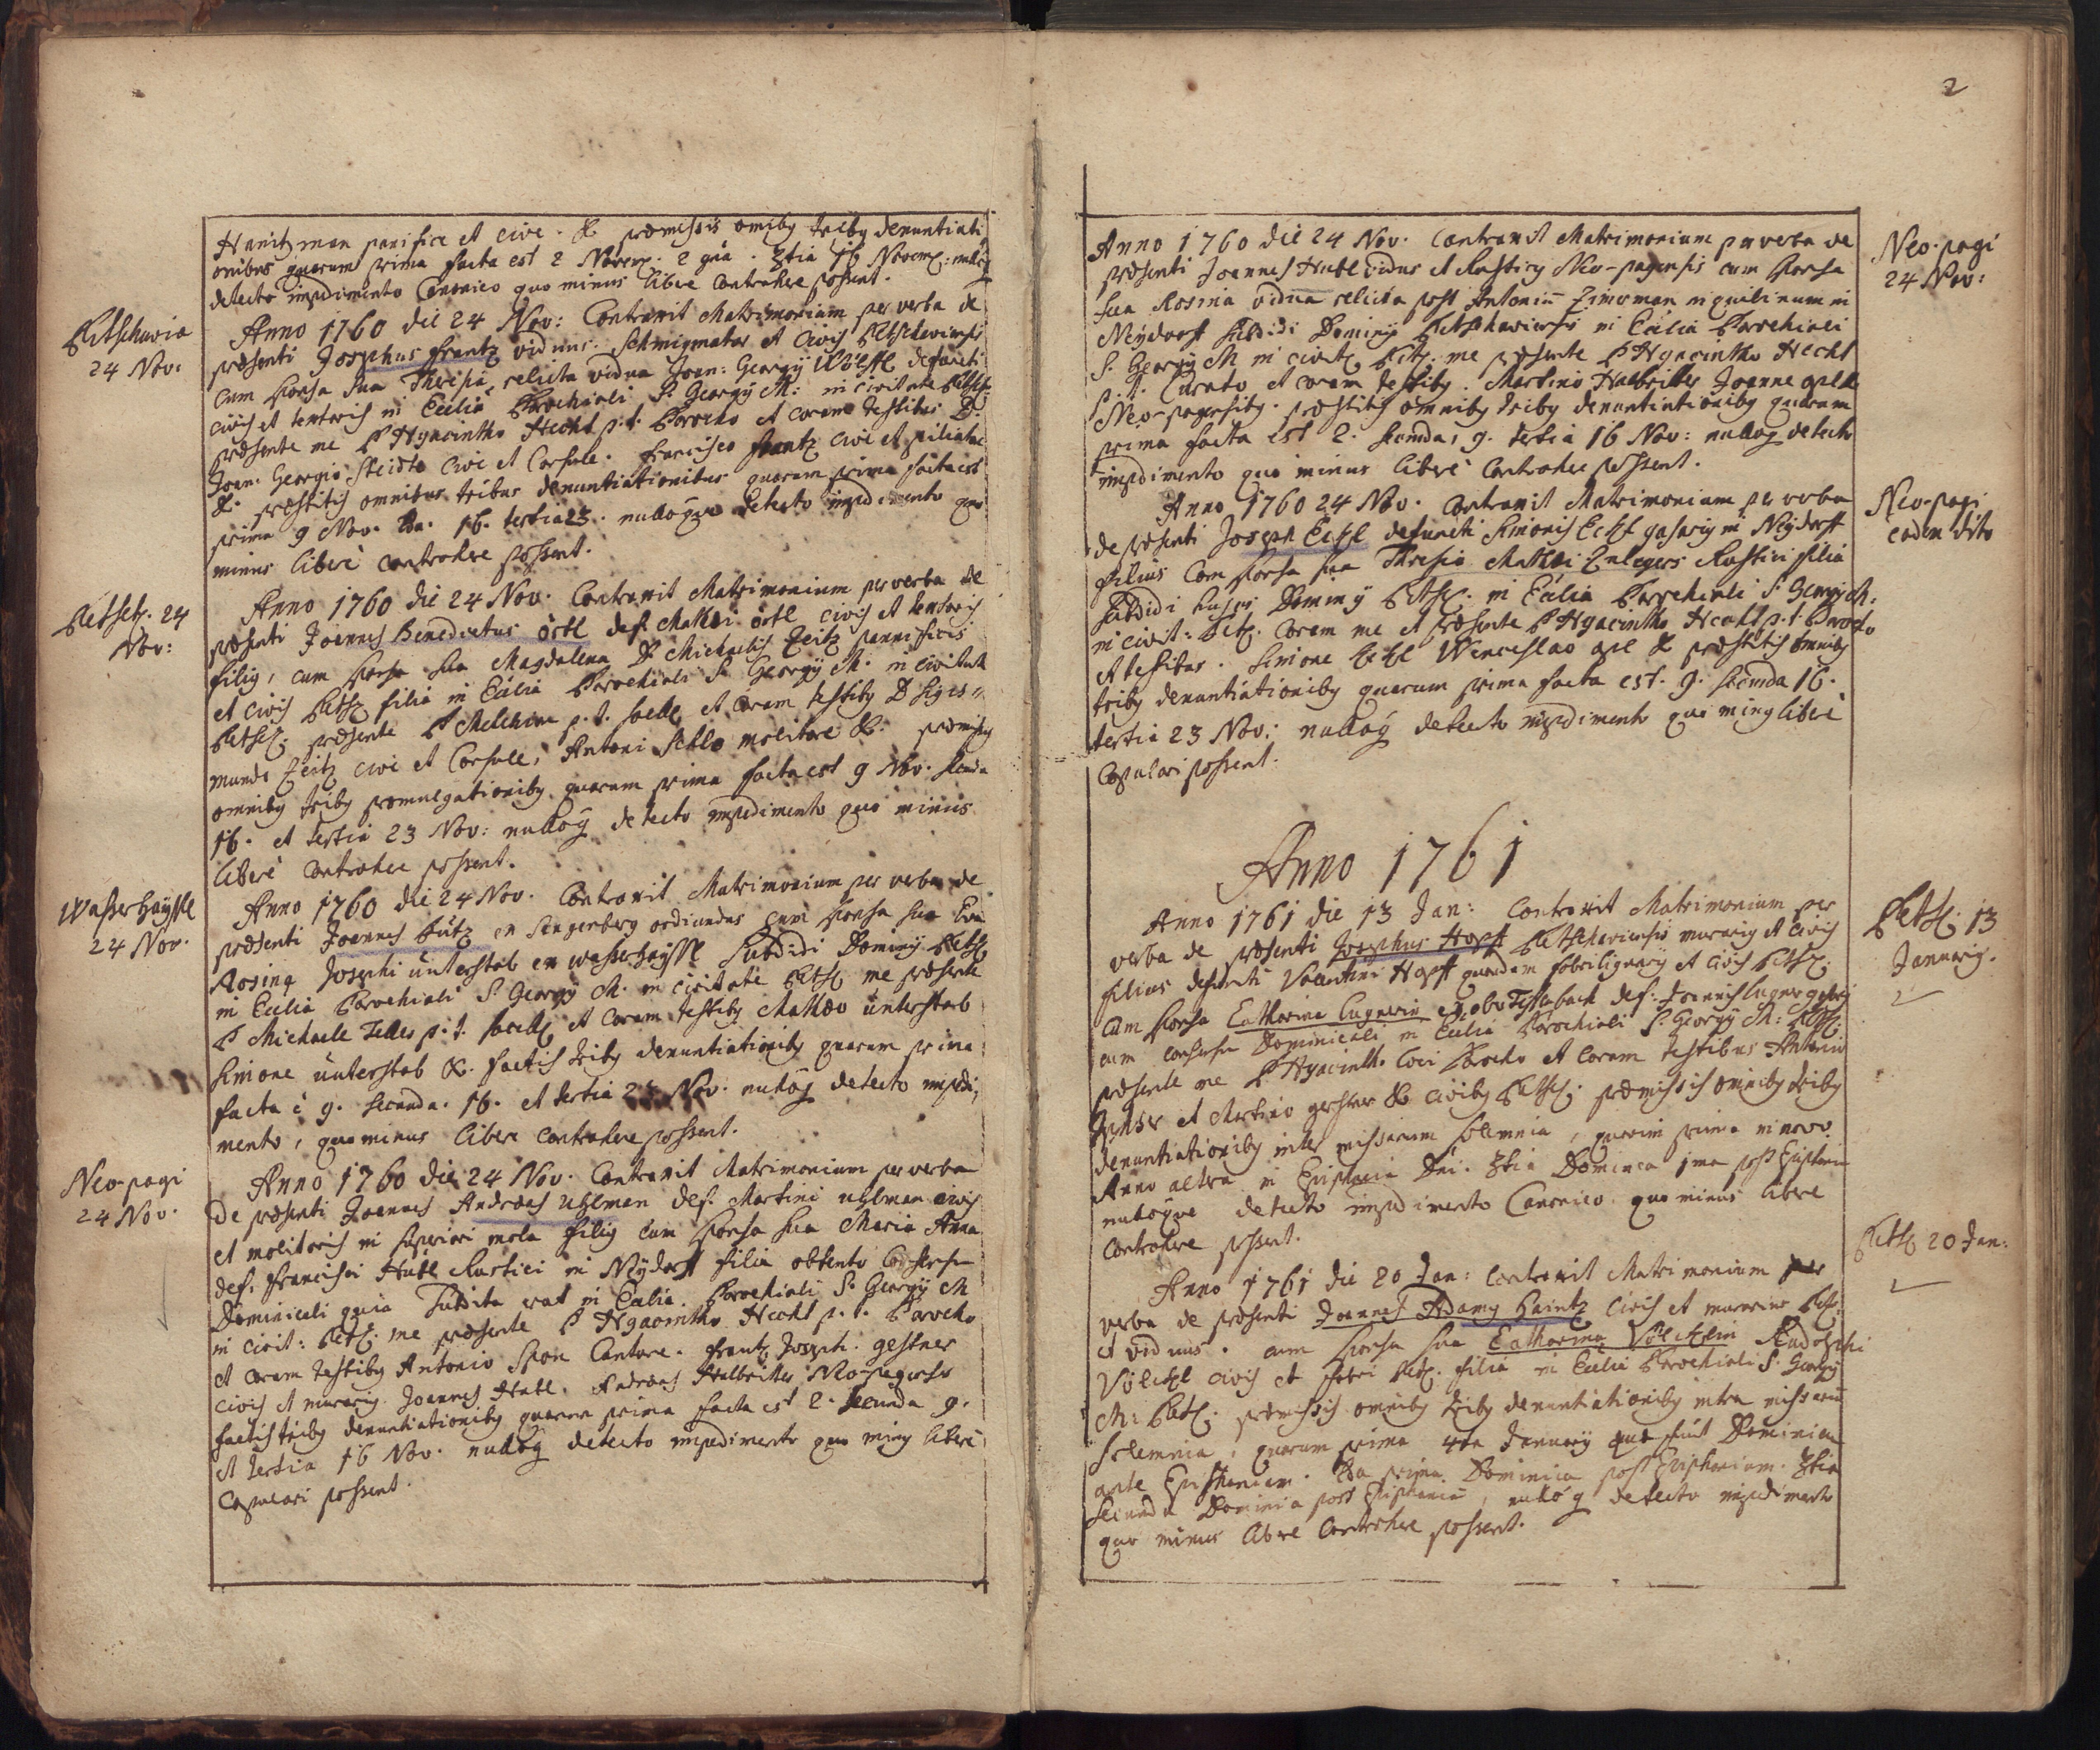 2
Hanitzman panifice et cive. & præmissis omib9 trib9 denuntiati
onibus quarum prima facta est 2 Novem. 2 9na. 3tia 16 Novem: nulloq
detecto impedimento Canonico quo minus libere contrahere possent.
Petschavia
24 Nov:
Anno 1760 die 24 Nov: Contraxit Matrimonium per verba de
præsenti Josephus Frantz viduus. et Civis Petschoviensis
cum sponsa sua Theresia, relicta vidua Joan: Georgÿ Wölffl defuncti
civis et textoris in Ecclia Parochiali S. Georgÿ M: in civitate Petsch
præsente me P Hyacintho Hecht p. t. Parocho et coram testibus D.
Joan: Georgio Steidte cive et Consule. Francisco Frantz cive et
&. præstitis omnibus tribus denuntiationibus quarum prima facta est
prima 9 Nov. 2da. 16. tertia 23. nulloque detecto impedimento quo
minus liberè contrahere possent.
Petsch. 24
Nov:
Anno 1760 die 24 Nov. Contraxit Matrimonium per verba de
præsenti Joannes Benedictus örtl def. Mathæi örtl civis et textoris
fili9, cum sponsa sua Magdalena D Michaelis Zeitz pannificis
et civis Petsch filia in Ecclia Parochiali S. Georgÿ M. in civitate
Petsch. præsente P Melchior p. t. Sacell et coram testib9 D Sigis=
mundo Zeitz cive et Consule, Antoni molitore &. præmissis
omnib9 trib9 promulgationib9 quarum prima facta est 9 Nov. secunda
16. et tertia 23 Nov: nulloq detecto impedimento quo minus
liberè contrahere possent.
Wasserhäyssl
24 Nov.
Anno 1760 die 24 Nov. Contraxit Matrimonium per verba de
præsenti Joannes Lutz ex Sangerberg oriundus cum sponsa sua Eva
Rosina Josephi unterstab ex wasserhäyssl Subditi Dominÿ Petsch
in Ecclia Parochiali S. Georgÿ M. in civitate Petsch me præsente
P Michaele Feller p. t. Sacell et coram testib9 Mathæo unterstab
Simone unterstab &. factis trib9 denuntiationib9 quarum prima
facta è 9. secunda. 16. et tertia 23 Nov. nulloq detecto impedi,
mento, quominus libere contrahere possent.
Neo-pagi
24 Nov.
Anno 1760 die 24 Nov. Contraxit Matrimonium per verba
de præsenti Joannes Andræas Uhlman def. Martini uhlman civis
et molitoris in superiori mola fili9 cum sponsa sua Maria Anna
def. Francisci Hübl Rustici in Neÿdorff filia obtento Consensu
Dominicali quia Subdita erat in Ecclia Parochiali S. Georgÿ M
in civit: Petsch. me præsente P Hyacintho Hecht p. t. Parocho
et coram testib9 Antonio Spon Cantore. Frantz Joseph. gestner
civis et murari9. Joannes Hubl. Andræas Halbritter Neo-pagensis
factis trib9 denuntiationib9 quarum prima facta est 2. secunda 9.
et tertia 16 Nov. nulloq detecto impedimento quo min9 liberè
copulari possent.
Anno 1760 die 24 Nov. Contraxit Matrimonium per verba de
præsenti Joannes Hubl vidus et Rustic9 Neo-pagensis cum sponsa
sua Rosina vidua relicta post Antoniu Zimerman inquilinum in
Neÿdorff Subditi Dominÿ Petschaviensis in Ecclia Parochiali
S. Georgÿ M in civit Petsch. me præsente P Hyacintho Hecht
p. t. Curato et coram testib9. Martino Halbritter Joanne
Neo-pagensib9. præstitis omnib9 trib9 denuntiationib9 quarum
prima facta est 2. secunda, 9. tertia 16 Nov: nulloq detecto
impedimento quo minus liberè contrahere possent.
Neo-pagi
24 Nov:
Anno 1760 24 Nov. Contraxit Matrimonium per verba
de præsenti Joseph Eckl defuncti Simonis Eckl in Neÿdorff
filius Cum sponsa sua Thresia Mathæi Rustici filia
Subditi hujus Dominÿ Petsch. in Ecclia Parochiali S. Georgÿ M:
in civit: Petsch. coram me et præsente P Hyacintho Hecht p. t. Parocho
et testibus. Simone Eckl Wenceslao & præstitis omnib9
trib9 denuntiationib9 quarum prima facta est. 9. secunda 16.
tertia 23 Nov: nulloq detecto impedimento quo min9 liberè
copulari possent.
Neo-pagi
eadem dito
Anno 1761
Anno 1761 die 13 Jan: Contraxit Matrimonium per
verba de præsenti Josephus Hopff Petschoviensis murari9 et civis
filius defuncti Valentini Hopff quondam fabrilignarÿ et civis Petsch.
cum sponsa Catharina Lugnerin ex def.
cum consensu Dominicali in Ecclia Parochiali S. Georgÿ M: Petsch.
præsente me P Hyacinth. loci Parocho et coram testibus Antonio
et Martino & civib9 Petsch. præmissis omnib9 trib9
denuntiationib9 inter missarum solemnia, quarum prima in novo
Anno altera in Epiphania Dni. 3tia Dominica 1ma post Epiphan
nulloque detecto impedimento Canonico quo minus libere
contrahere possent.
Petsch. 13
Januarÿ.
Anno 1761 die 20 Jan: Contraxit Matrimonium per
verba de præsenti Joannes Adam9 Paintz Civis et murarius Petsch.
et viduus. cum sponsa sua Catharina Völcklin Rudolphi
Völckl civis et fabri Petsch. filia in Ecclia Parochiali S. Georgÿ
M: Petsch. præmissis omnib9 trib9 denuntiationib9 intra missaru
solemnia, quarum prima 4ta Januarÿ quæ fuit Dominica
ante Epiphaniam. 2da prima Dominica post Epiphaniam. 3tia
secunda Dominica post Epiphaniã, nulloq detecto impedimento
quo minus libere contrahere possent.
Petsch 20 Jan: